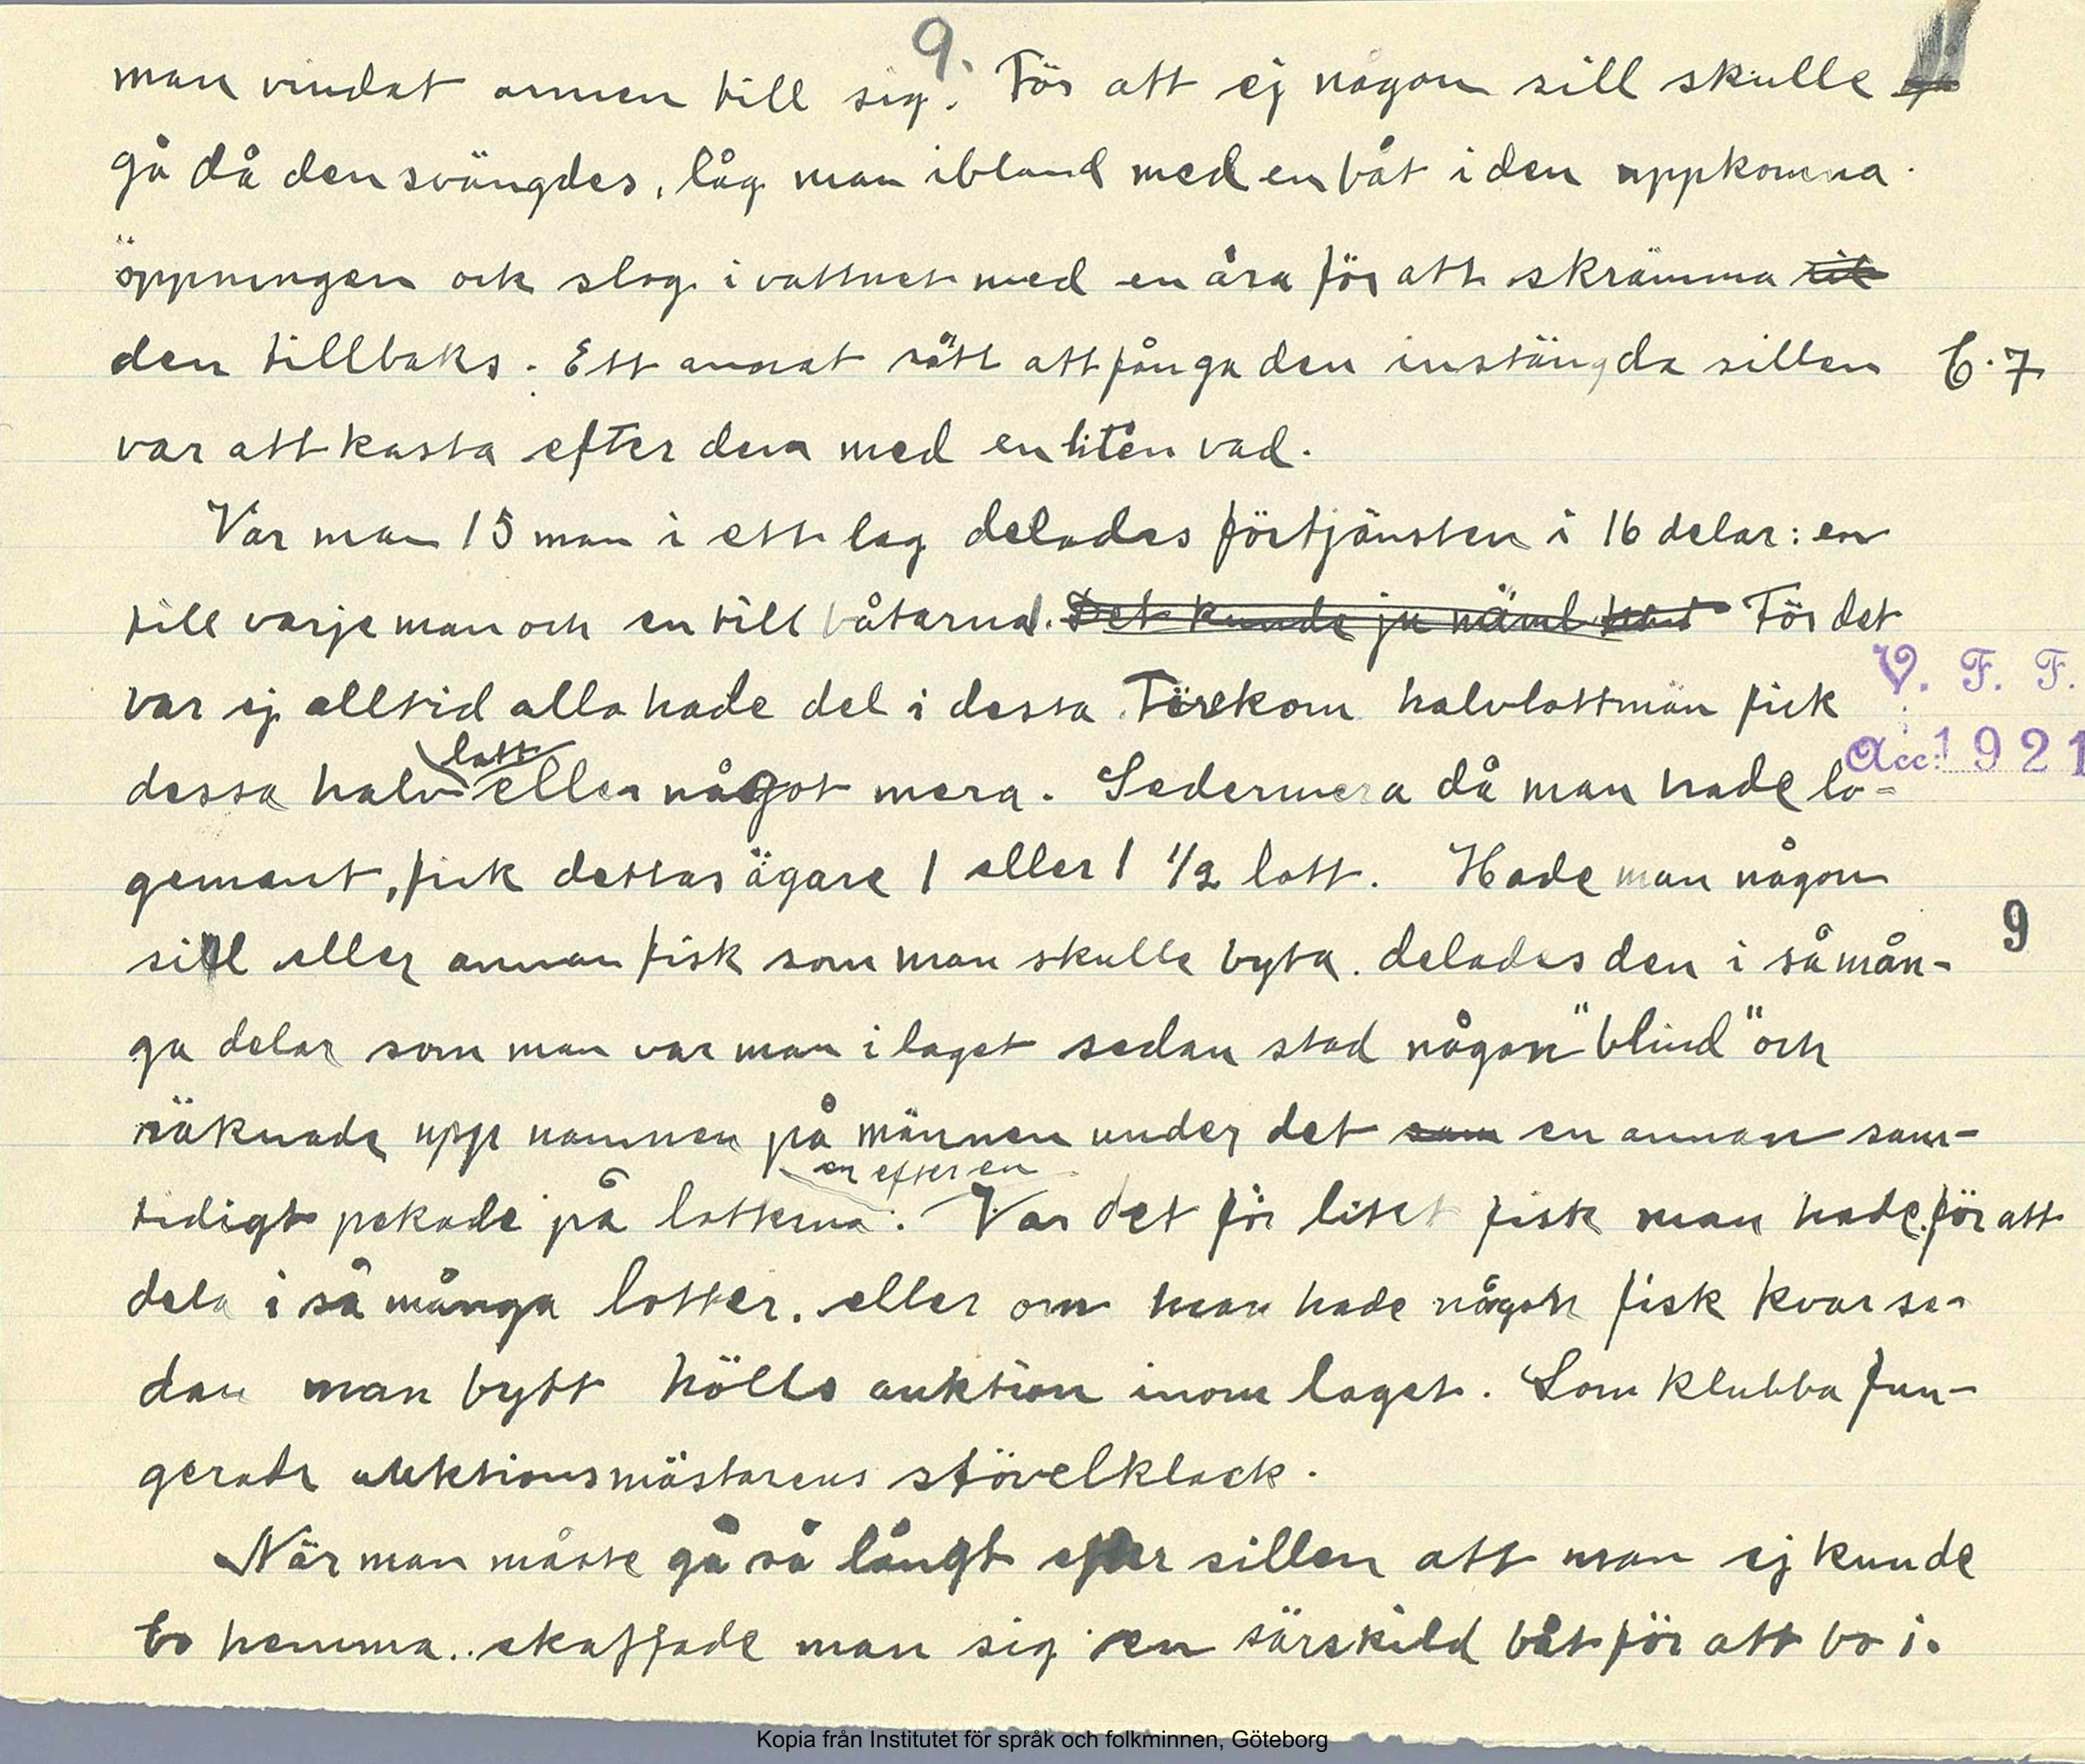 9.
man vindat armen till sig. För att ej någon sill skulle
gå då den svängdes, låg man ibland med en båt i den uppkomna
öppningen och slog i vattnet med en åra för att skrämma till
den tillbaks. Ett annat sätt att fånga den instängda sillen C.7
var att kasta efter den med en liten vad.
Var man 15 man i ett lag delades förtjänsten i 16 delar: en
till varje man och en till båtarna. Det kunde ju näml För det
var ej alltid alla hade del i dessa. Förekom halvlottmän fick
V. F. F.
lott
dessa halv eller något mera. Sedermera då man hade lo=
Acc: 1921
gemant, fick dettas ägare 1 eller 1 1/2 lott. Hade man någon
9
sill eller annan fisk som man skulle byta. delades den i så mån-
ga delar som man var man i laget sedan stod någon "blind" och
räknade upp namnen på männen under det som en annan sam-
en efter en
tidigt pekade på lotterna. Var det för litet fisk man hade för att
dela i så många lotter, eller om man hade någon fisk kvar se-
dan man bytt hölls auktion inom laget. Som klubba fun-
gerade auktionsmästarens stövelklack.
När man måste gå så långt efter sillen att man ej kunde
bo hemma.. skaffade man sig en särskild båt för att bo i.
Kopia från Institutet för språk och folkminnen, Göteborg